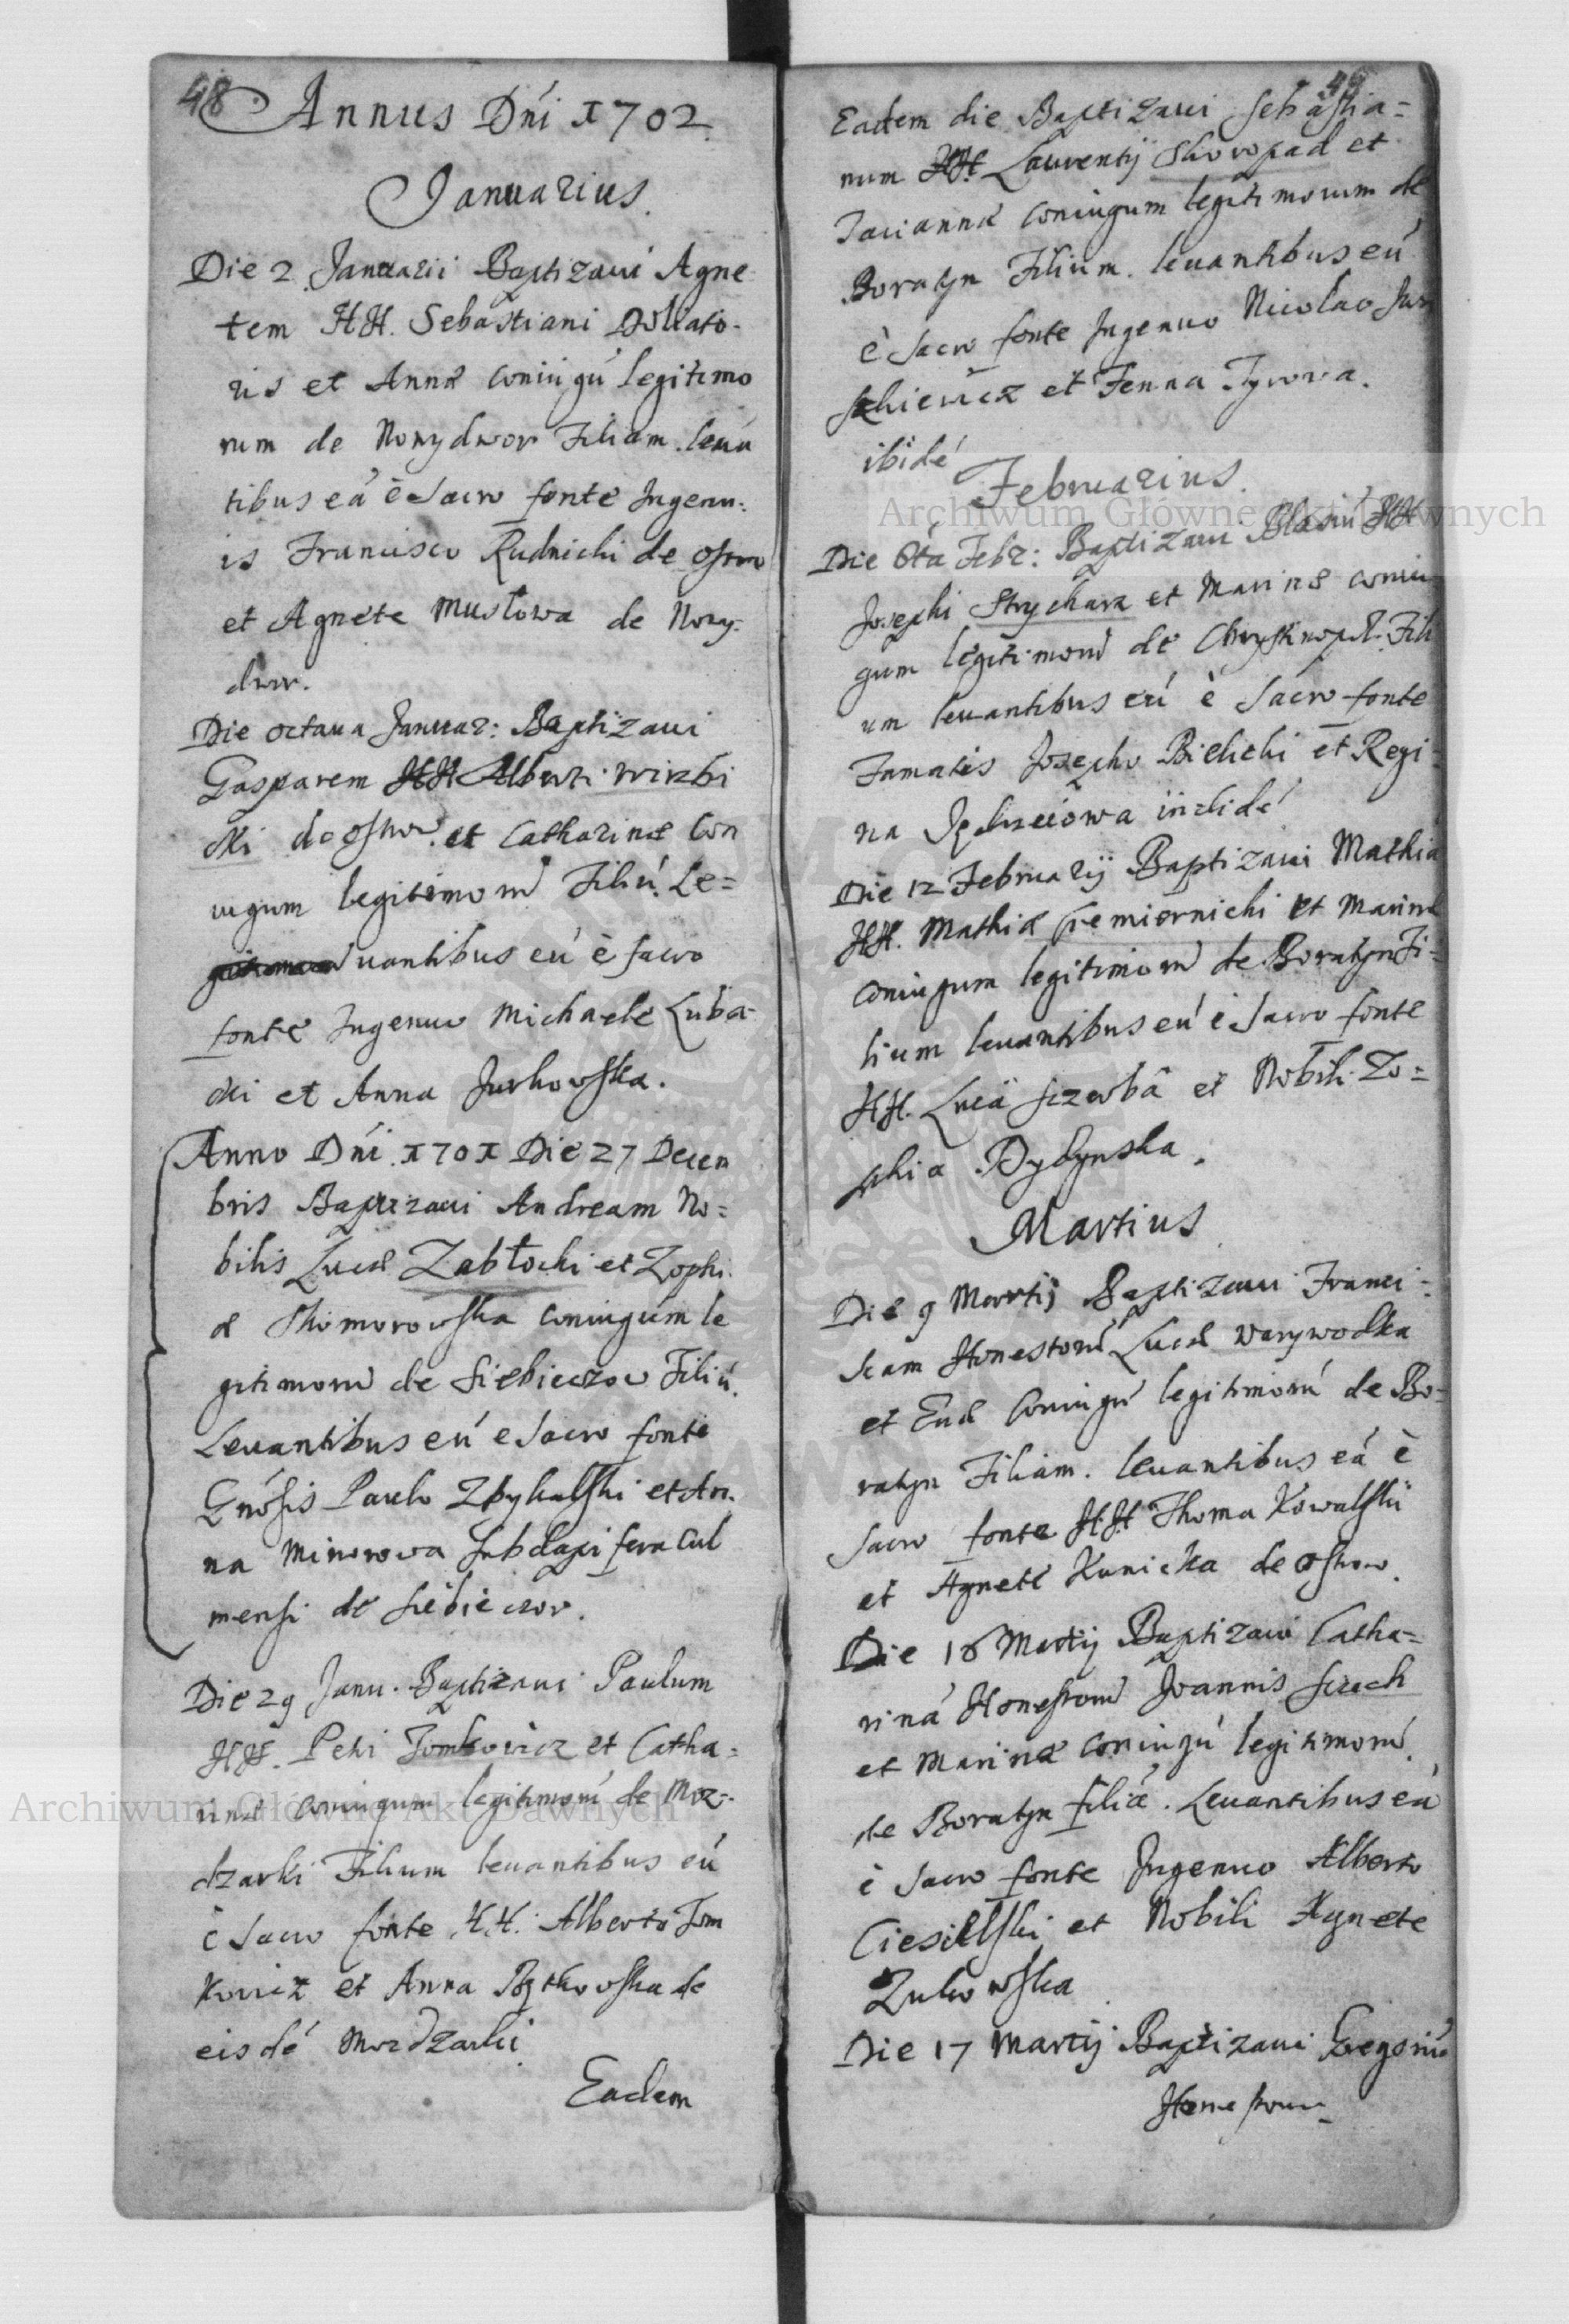 48
Annus Dńi 1702
Januarius.
Die 2 Januarii Baptizaui Agne
tem HH. Sebastiani Doliato-
ris et Annæ coniugú legitimo
rum de Nowydwor Filiam. leuá
tibus eá è Sacro fonte Ingenu-
is Francisco Rudnicki de Ostrow
et Agnete Musłowa de Nowy-
dwor.
Die octaua Januar: Baptizaui
Gasparem HH Alberti Wirzbi
cki de Ostrow et Catharinæ Con
iugum legitimorū Filiú. Le=
uantibus eú è sacro
fonte Ingenuo Michaele Luba-
cki et Anna Jurkowska.
Anno Dńi 1701 Die 27 Decem
bris Baptizaui Andream No=
bilis Lucæ Zabłocki et Zophi-
æ Skomorowska coniugum le
gitimorū de Siebieczow Filiú.
Leuantibus eú e Sacro fonte
Gńosis Paulo Zbykalski et An-
na Minorowa Subdapifera Cul
mensi de Siebieczow.
Die 29 Janu. Baptizaui Paulum
HH. Petri Tomkowicz et Catha=
rinæ coniugum legitimorú de Moz-
dzarki Filium leuantibus eú
è Sacro fonte H.H. Alberto Tom
kowicz et Anna Bytkowska de
eisdé Mozdzarki
Eadem
49
Eadem die Baptizaui Sebastia=
num HH. Laurentij Skoropad et
Marianna coniugum legitimorum de
Boratyn Filium. leuantibus eú
è Sacro fonte Ingenuo Nicolao
et Fenna Tyrowa.
ibidé
Februarius.
Die 6ta Febr: Baptizaui Blasiú HH
Josephi Strycharz et Marinæ coniu
gum legitimorū de Chrystinopol. Fili
um leuantibus eú è Sacro fonte
Famatis Josepho Bielicki et Regi-
na
Die 12 Februarij Baptizaui Mathia
HH. Mathiæ Cremiernicki et Marinæ
coniugum legitimorū de Boratyn Fi=
lium leuantibus eú è Sacro fonte
HH. Lucâ Sczerbâ et Nobili Zo=
phia Dydynska.
Martius
Die 9 Martij Baptizaui Franci-
scam Honestorū Lucæ Warywodka
et Euæ Coniugú legitimorú de Bo-
ratyn Filiam. leuantibus eá è
Sacro fonte HH Thoma Kowalski
et Agnete Kunicka de Ostrow.
Die 16 Martij Baptizaui Catha=
riná Honestorū Joannis Szech
et Marinæ coniugú legitimorú.
de Boratyn filiá. Leuantibus eá
è Sacro fonte Ingenuo Alberto
Ciesielski et Nobili Agnete
Zukowska
Die 17 Martij Baptizaui Gregoriú
Honestorum
Archiwum Główne Akt Dawnych
Archiwum Główne Akt Dawnych